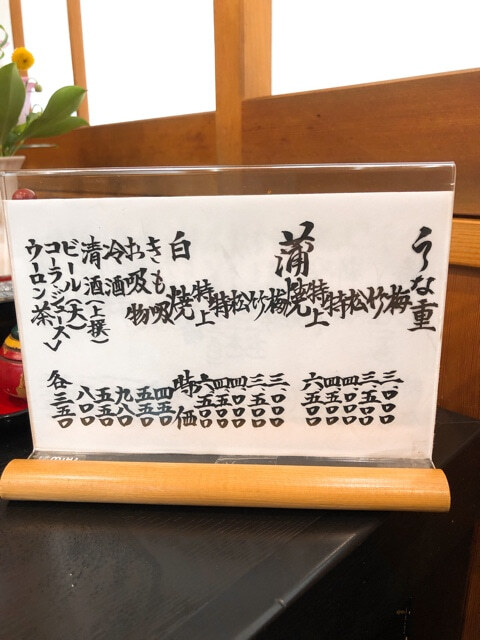 うな重
梅 三.〇〇〇
竹 三.五〇〇
松 四.〇〇〇
特 四.五〇〇
特上 六.五〇〇
蒲焼
梅 三.〇〇〇
竹 三.五〇〇
松 四.〇〇〇
特 四.五〇〇
特上 六.五〇〇
白焼 時価
きも吸 四五〇
お吸物 五五〇
冷酒 九八〇
清酒(上撰) 五五〇
ビール(大) 八〇〇
コーラ・ジュース
ウーロン茶 各三五〇